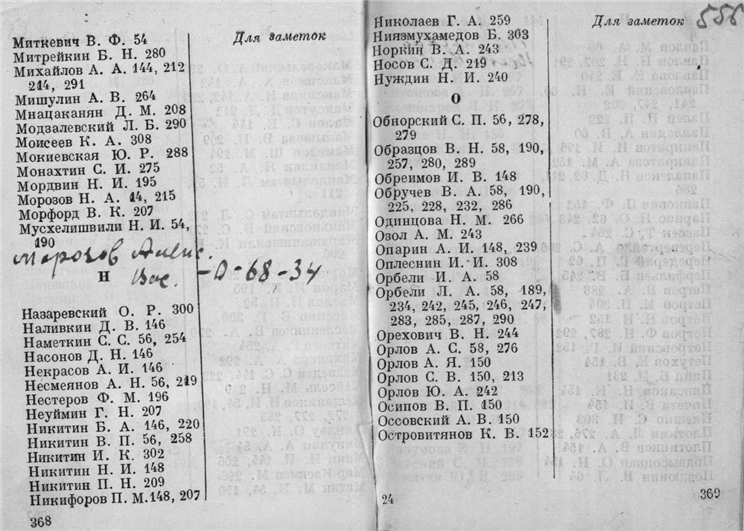 Миткевич В. Ф. 54
Митрейкин Б. Н. 280
Михайлов А. А. 144, 212
214, 291
Мишулин А. В. 264
Мнацаканян Д. М. 208
Модзалевский Л. Б. 290
Моисеев К. А. 308
Мокиевская Ю. Р. 288
Монахтин С. И. 275
Мордвин Н. И. 195
Морозов Н. А. 14, 215
Морфорд В. К. 207
Мусхелишвили Н. И. 54,
190
Морозов Алекс.
Вас. -0-68-34
Н
Назаревский О. Р. 300
Наливкин Д. В. 146
Наметкин С. С. 56, 254
Насонов Д. Н. 146
Некрасов А. И. 146
Несмеянов А. Н. 56, 219
Нестеров Ф. М. 196
Неуймин Г. Н. 207
Никитин Б. А. 146, 220
Никитин В. П. 56, 258
Никитин И. К. 302
Никитин Н. И. 148
Никитин П. Н. 209
Никифоров П. М. 148, 207
368
Для заметок
Николаев Г. А. 259
Ниязмухамедов Б. 303
Норкин В. А. 243
Носов С. Д. 219
Нуждин Н. И. 240
О
Обнорский С. П. 56, 278,
279
Образцов В. Н. 58, 190,
257, 280, 289
Обреимов И. В. 148
Обручев В. А. 58, 190,
225, 228, 232, 286
Одинцова Н. М. 266
Озол А. М. 243
Опарин А. И. 148, 239
Оплеснин И. И. 308
Орбели И. А. 58
Орбели Л. А. 58, 189,
234, 242, 245, 246, 247,
283, 285, 287, 290
Орехович В. Н. 244
Орлов А. С. 58, 276
Орлов А. Я. 150
Орлов С. В. 150, 213
Орлов Ю. А. 242
Осипов В. П. 150
Оссовский А. В. 150
Островитянов К. В. 152
24
Для заметок
369